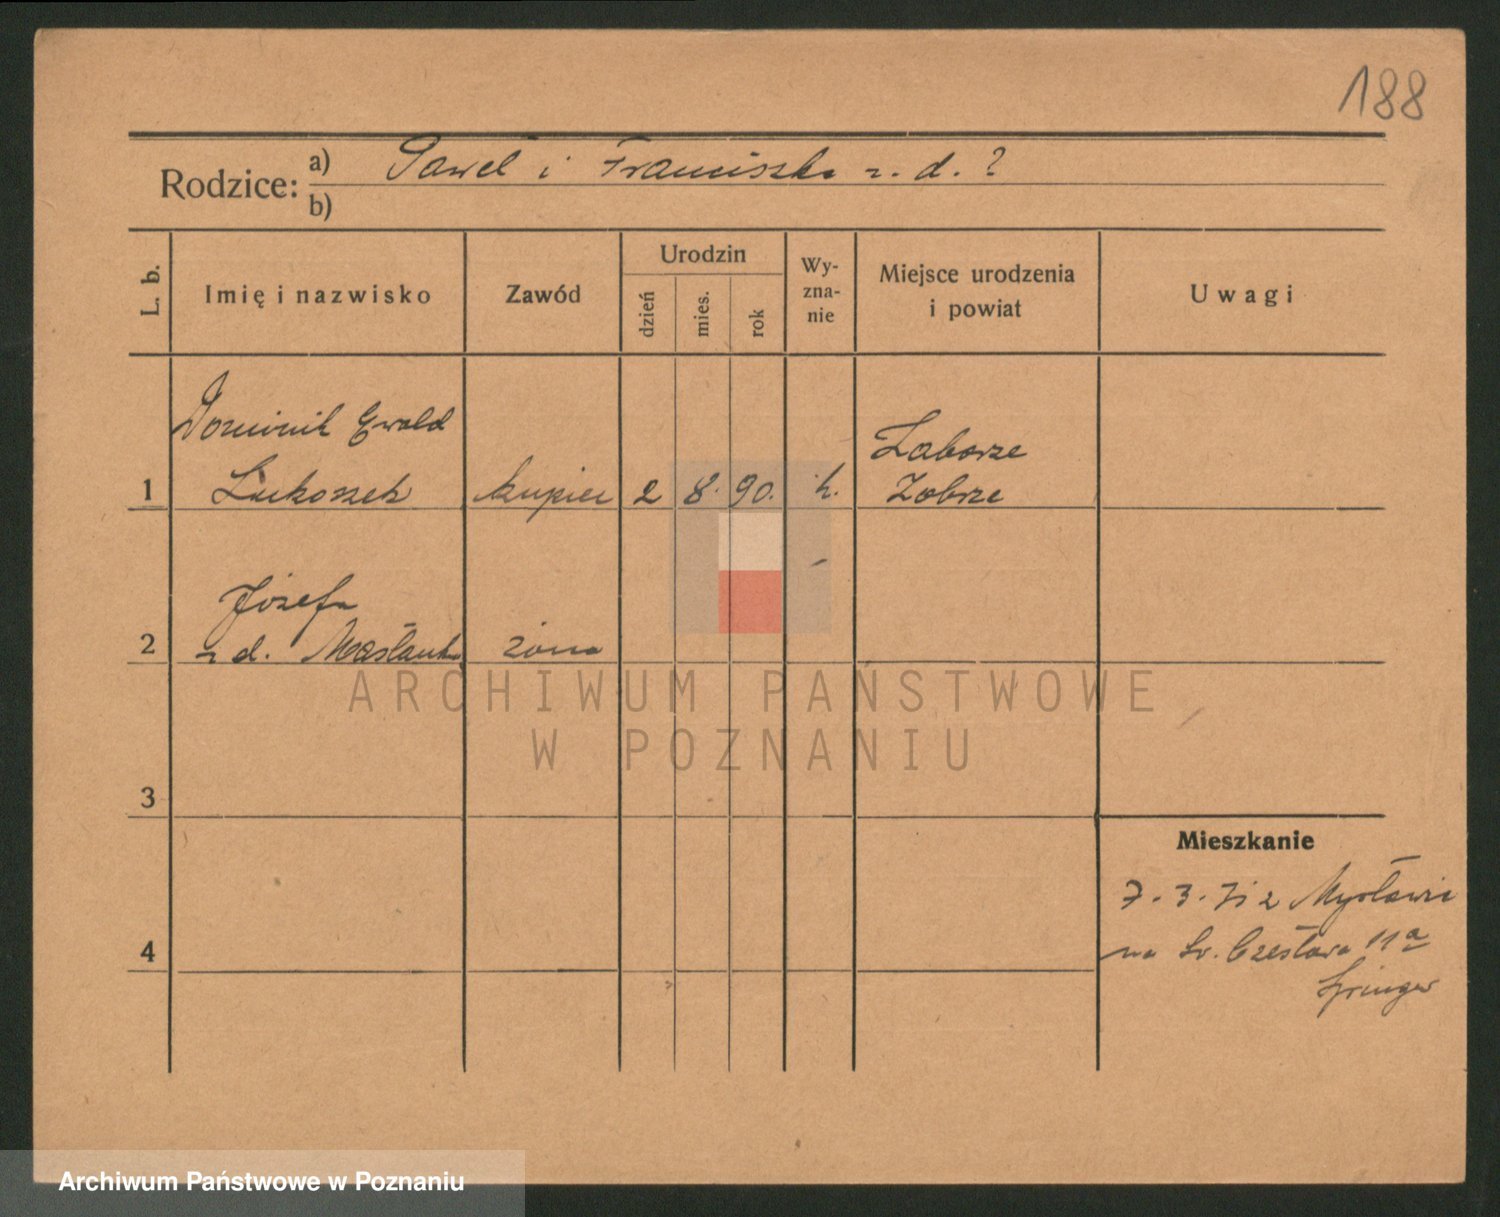 188
Rodzice: a) Paweł i Franciszka z. d. ?
b)
L. b. Imię i nazwisko Zawód Urodzin dzień mies. rok Wyznanie Miejsce urodzenia i powiat Uwagi
Dominik Ewald Zaborze
1 Lukoszek kupiec 2 8. 90. k. Zabrze
Józefa
2 z d. Maślanka żona
ARCHIWUM PAŃSTWOWE
W POZNANIU
3
Mieszkanie
7. 3. z Mysłowic
4 na Św. Czesława 11a
Springer
Archiwum Państwowe w Poznaniu